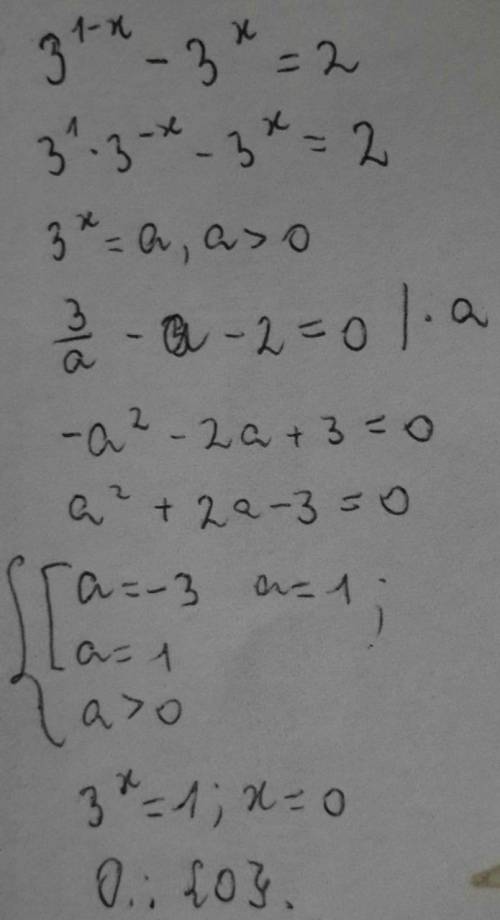 3^{1-x} - 3^x = 2
3^1 · 3^{-x} - 3^x = 2
3^x = a, a > 0
3/a - a - 2 = 0 | · a
-a² - 2a + 3 = 0
a² + 2a - 3 = 0
{ [ a = -3 a = 1 ;
a = 1
a > 0
3^x = 1; x = 0
О.: {0}.